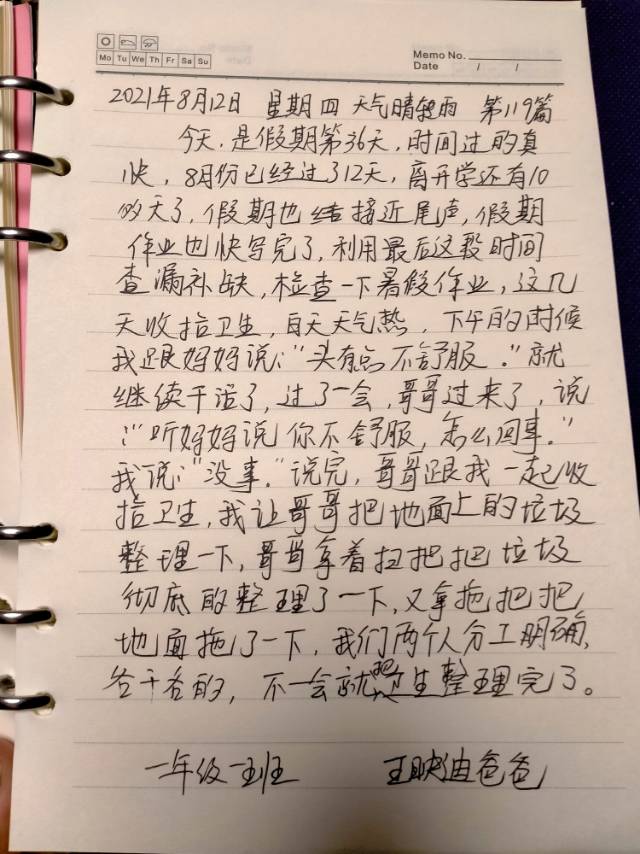 Mo Tu We Th Fr Sa Su
Memo No.
Date / /
2021年8月12日 星期四 天气晴转雨 第119篇
今天,是假期第36天,时间过的真
快,8月份已经过了12天,离开学还有10
多天了,假期也结接近尾声,假期
作业也快写完了,利用最后这段时间
查漏补缺,检查一下暑假作业,这几
天收拾卫生,白天天气热,下午的时候
我跟妈妈说:“头有点不舒服。”就
继续干活了,过了一会,哥哥过来了,说
:“听妈妈说你不舒服,怎么回事。”
我说:“没事。”说完,哥哥跟我一起收
拾卫生,我让哥哥把地面上的垃圾
整理一下,哥哥拿着扫把把垃圾
彻底的整理了一下,又拿拖把把
地面拖了一下,我们两个人分工明确,
各干各的,不一会就把卫生整理完了。
一年级一班 王映迪爸爸